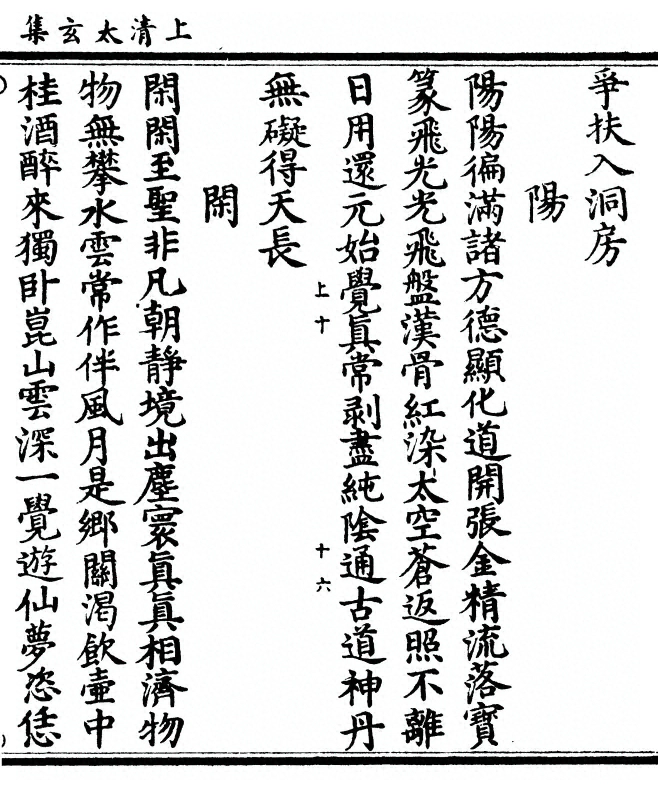 上清太玄集
爭扶入洞房
陽
陽陽徧滿諸方德顯化道開張金精流落寶
篆飛光光飛盤漢骨紅染太空蒼返照不離
日用還元始覺眞常剥盡純陰通古道神丹
上十
十六
無礙得天長
閑
閑閑至聖非凡朝靜境出塵寰眞眞相濟物
物無攀水雲常作伴風月是鄉關渴飲壷中
桂酒醉來獨卧崑山雲深一覺遊仙夢恣恁